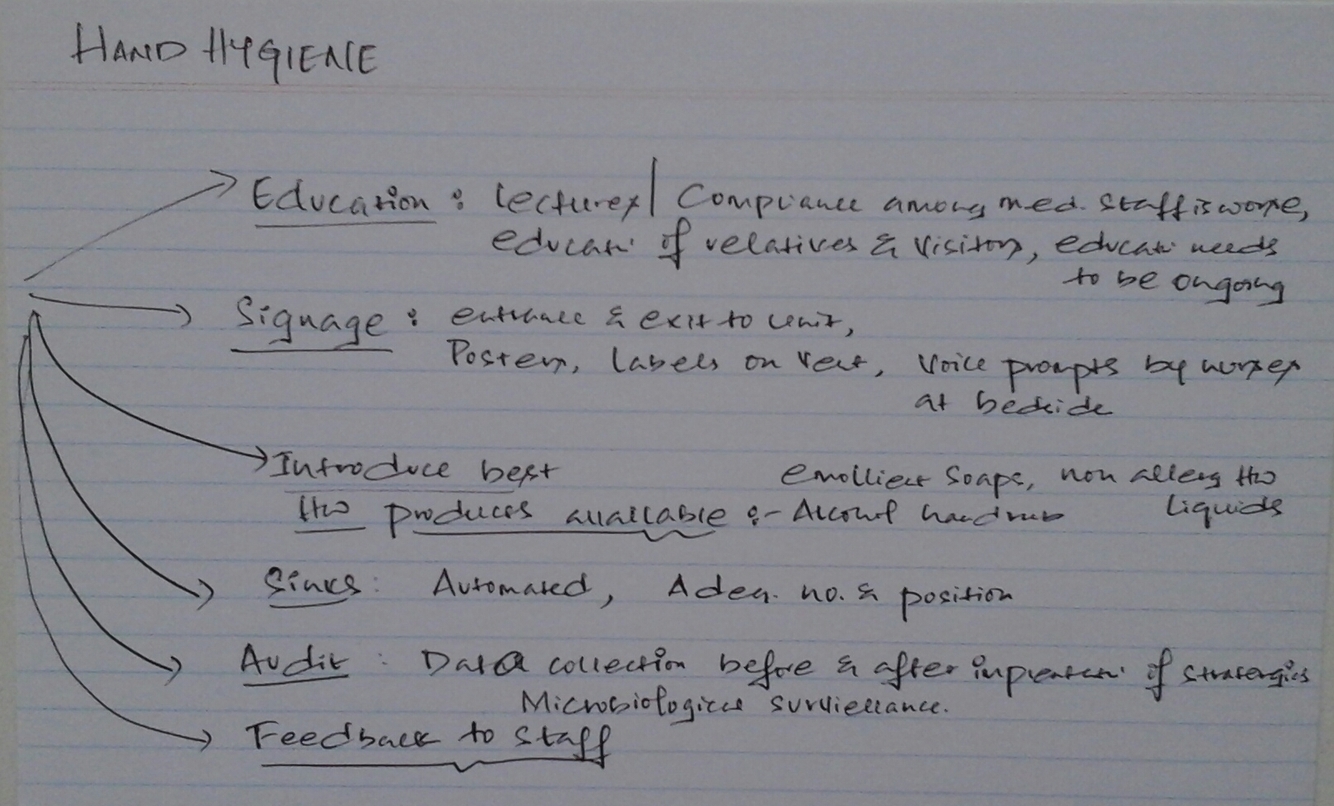 HAND HYGIENE
Education : Lectures / Compliance among med. staff is worse,
educatn of relatives & visitors, educatn needs
to be ongoing
Signage : entrance & exit to unit,
Posters, Labels on Vent, Voice prompts by nurses
at bedside
Introduce best emollient soaps, non allerg HW
HW produces available :- Alcohol handrub liquids
Sinks : Automated, Adeq. no. & position
Audit : Data collection before & after implementn of strategies
Microbiological surviellance.
Feedback to staff